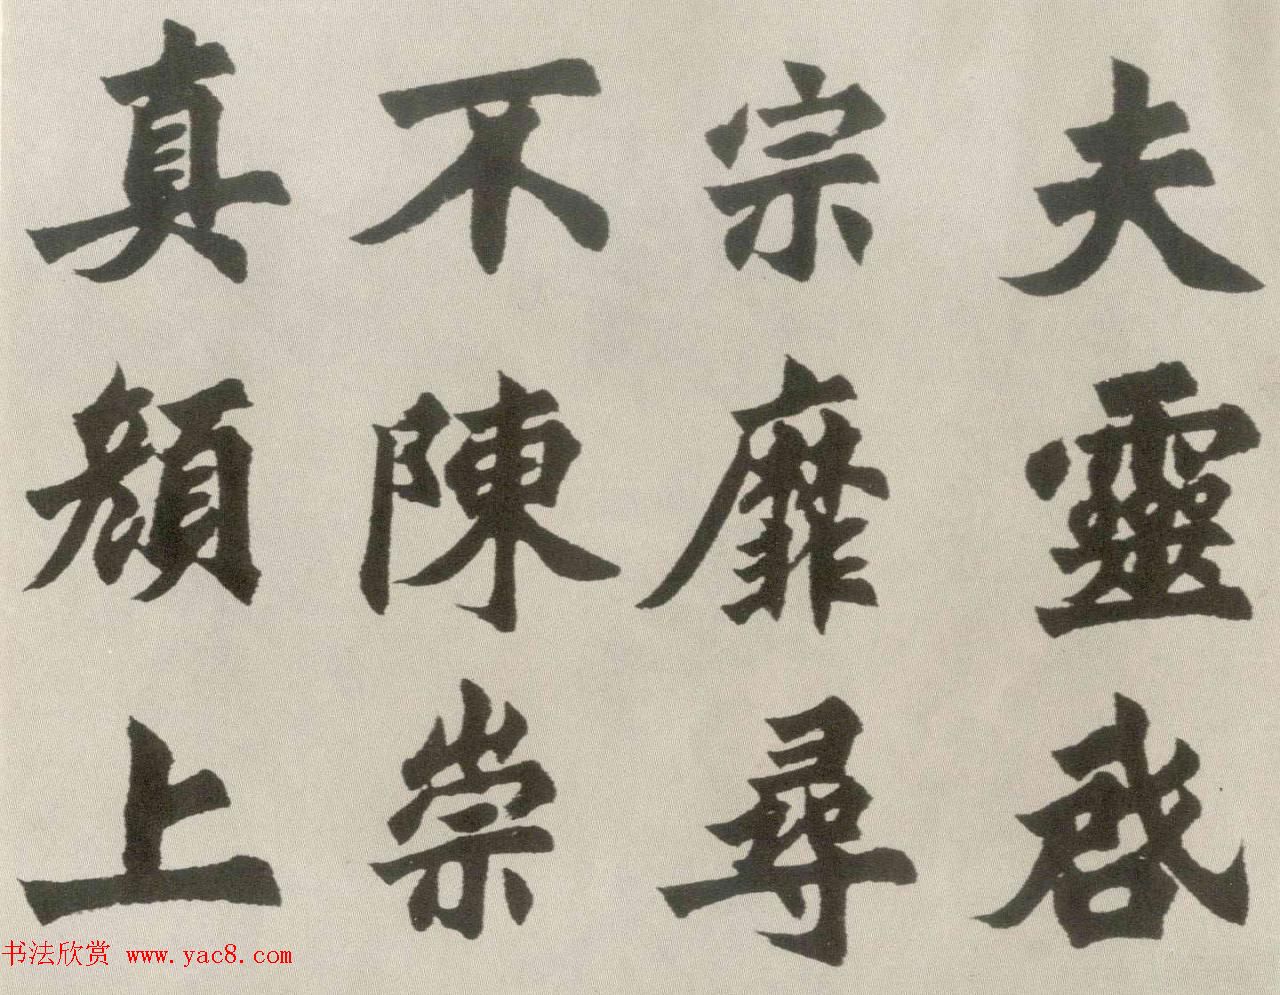 夫靈啓
宗靡尋
不陳崇
真顔上
书法欣赏 www.yac8.com